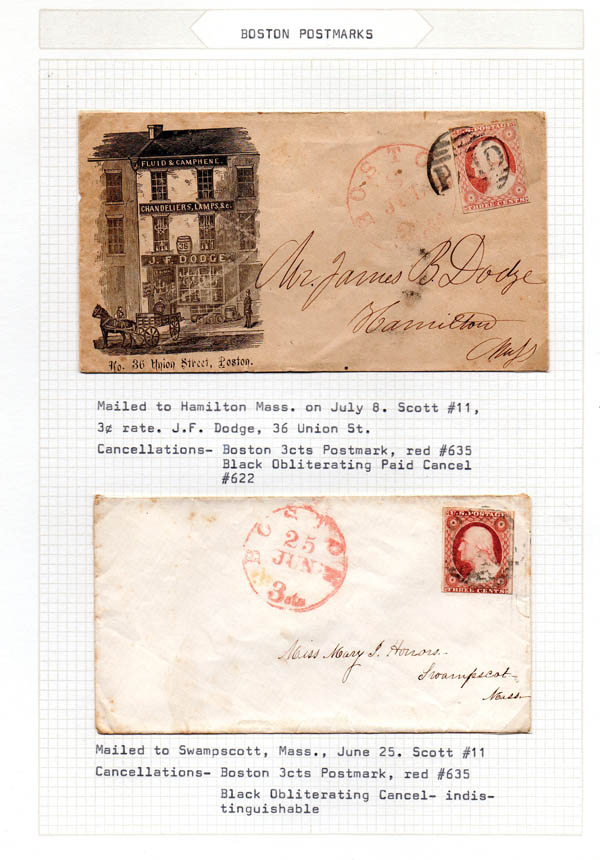 BOSTON POSTMARKS
FLUID & CAMPHENE.
CHANDELIERS, LAMPS, &c.
J. F. DODGE.
No. 36 Union Street, Boston.
BOSTO
PAID
U.S. POSTAGE
THREE CENTS
Mr. James B. Dodge
Hamilton
Mass
Mailed to Hamilton Mass. on July 8. Scott #11,
3¢ rate. J.F. Dodge, 36 Union St.
Cancellations- Boston 3cts Postmark, red #635
Black Obliterating Paid Cancel
#622
BOSTON
25
JUN
3cts
U.S. POSTAGE
THREE CENTS
Miss Mary J. Honors.
Swampscot
Mass.
Mailed to Swampscott, Mass., June 25. Scott #11
Cancellations- Boston 3cts Postmark, red #635
Black Obliterating Cancel- indis-
tinguishable